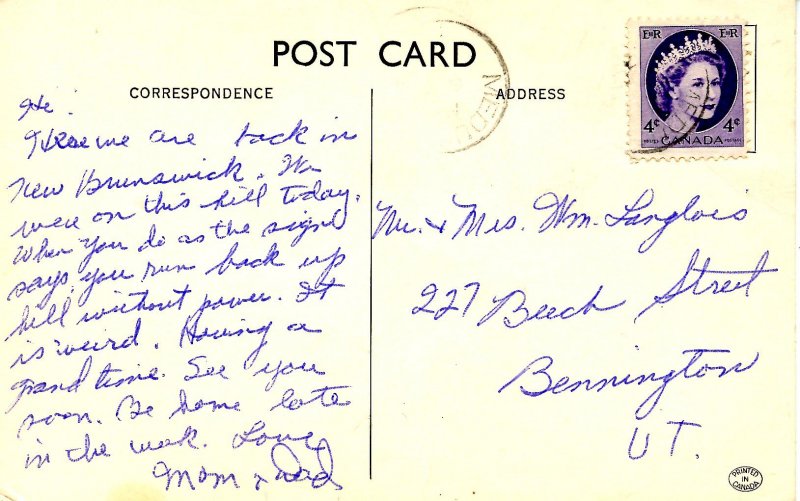 POST CARD
CORRESPONDENCE
ADDRESS
Hi!
Here we are back in
New Brunswick. We
were on this hill today.
When you do as the sign
says, you run back up
hill without power. It
is weird. Having a
grand time. See you
soon. Be home late
in the week. Love
Mom & Dad
Mr. & Mrs. Wm. Langlois
227 Beech Street
Bennington
UT.
E II R E II R
4¢ 4¢
POSTES CANADA POSTAGE
MED
MED
PRINTED
IN
CANADA